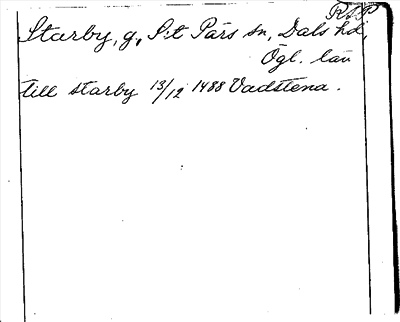 RAP
Starby, g, S:t Pärs sn, Dals hd,
Ögl. län
till starby 13/12 1488 Vadstena.